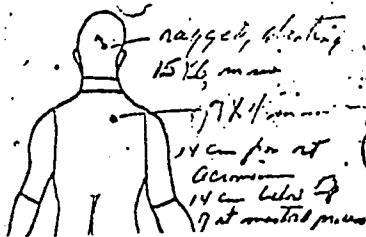 ragged, slanting
15 X 6 mm
7 X 4 mm
14 cm from rt
acromion
14 cm below
rt mastoid process